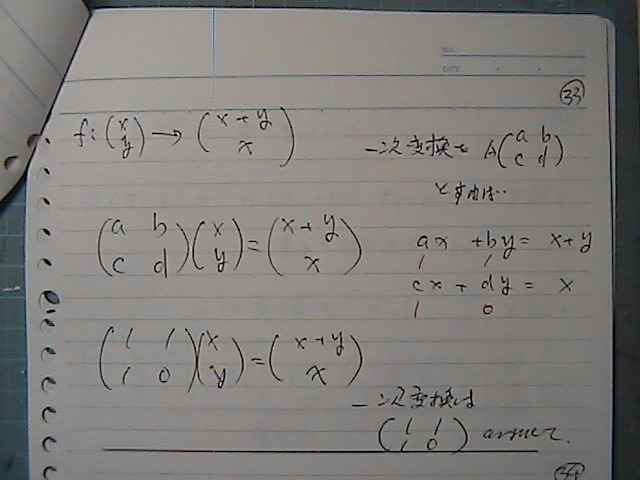 NO.
DATE
33
f: (x y) → (x + y x)
一次変換を A(a b c d)
とすれば‥
(a b c d)(x y) = (x + y x)
ax + by = x + y
1 1
cx + dy = x
1 0
(1 1 1 0)(x y) = (x + y x)
一次変換は
(1 1 1 0) answer.
34